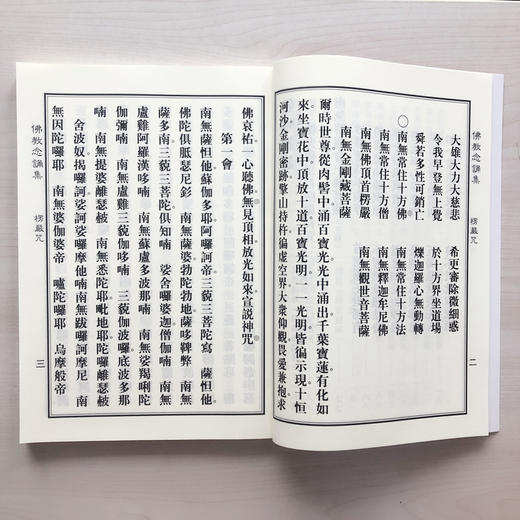 佛教念誦集
楞嚴咒
二
大雄大力大慈悲 希更審除微細惑
令我早登無上覺 於十方界坐道場
舜若多性可銷亡 爍迦羅心無動轉
南無常住十方佛 南無常住十方法
南無常住十方僧 南無釋迦牟尼佛
南無佛頂首楞嚴 南無觀世音菩薩
南無金剛藏菩薩
爾時世尊從肉髻中涌百寶光光中涌出千葉寶蓮有化如
來坐寶花中頂放十道百寶光明一一光明皆徧示現十恒
河沙金剛密跡擎山持杵徧虛空界大眾仰觀畏愛兼抱求
佛哀祐一心聽佛無見頂相放光如來宣說神咒
第一會
南無薩怛他蘇伽多耶阿囉訶帝三藐三菩陀寫 薩怛他
佛陀俱胝瑟尼釤 南無薩婆勃陀勃地薩哆鞞弊 南無
薩多南三藐三菩陀俱知喃 娑舍囉婆迦僧伽喃 南無
盧雞阿羅漢哆喃 南無蘇盧多波那喃 南無娑羯唎陀
伽彌喃 南無盧雞三藐伽哆喃 三藐伽波囉底波多那
喃 南無提婆離瑟赧 南無悉陀耶毗地耶陀囉離瑟赧
舍波奴揭囉訶娑訶娑囉摩他喃南無跋囉訶摩尼 南
無因陀囉耶 南無婆伽婆帝 嚧陀囉耶 烏摩般帝
佛教念誦集
楞嚴咒
三